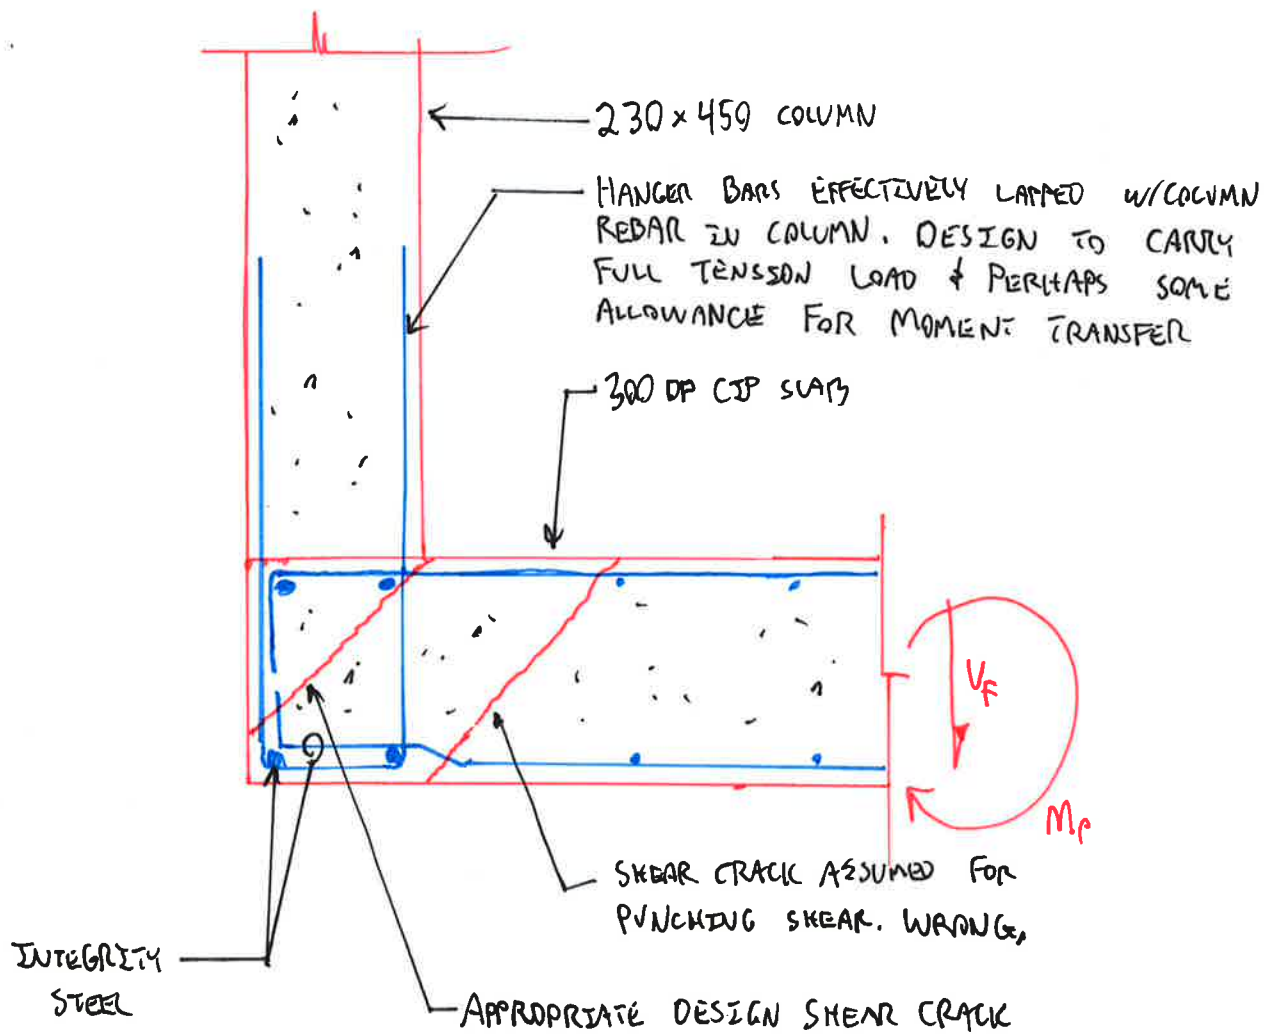 230 x 450 COLUMN
HANGER BARS EFFECTIVELY LAPPED W/COLUMN
REBAR IN COLUMN. DESIGN TO CARRY
FULL TENSION LOAD & PERHAPS SOME
ALLOWANCE FOR MOMENT TRANSFER
300 DP CIP SLAB
VF
MP
SHEAR CRACK ASSUMED FOR
PUNCHING SHEAR. WRONG.
INTEGRITY
STEEL
APPROPRIATE DESIGN SHEAR CRACK